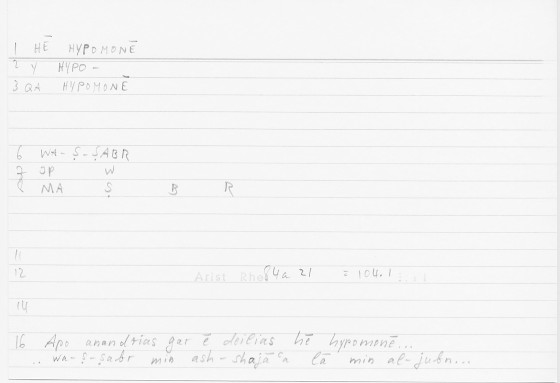 1 HĒ HYPOMONĒ
2 Y HYPO-
3 QA HYPOMONĒ
6 WA-Ṣ-ṢABR
7 JP W
8 MA Ṣ B R
11
12 Arist Rhet 84a 21 = 104.1
14
16 Apo anandrias gar ē deilias hē hypomonē...
.. wa-ṣ-ṣabr min ash-shajāʿa lā min al-jubn...